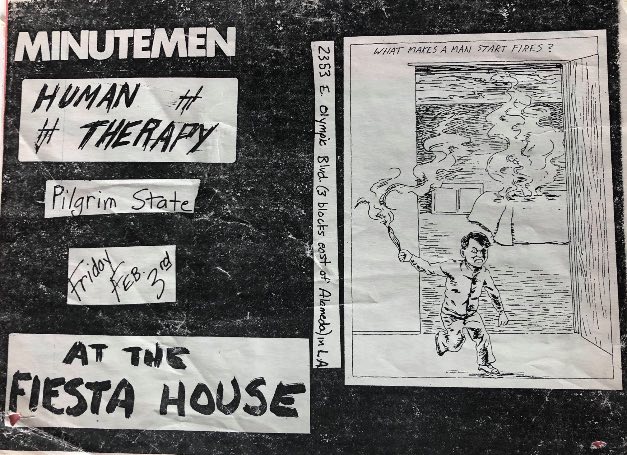 MINUTEMEN
HUMAN #
# THERAPY
Pilgrim State
Friday
FEB. 3rd
AT THE
FIESTA HOUSE
2353 E. Olympic Blvd. (3 blocks east of Alameda) in L.A.
WHAT MAKES A MAN START FIRES?